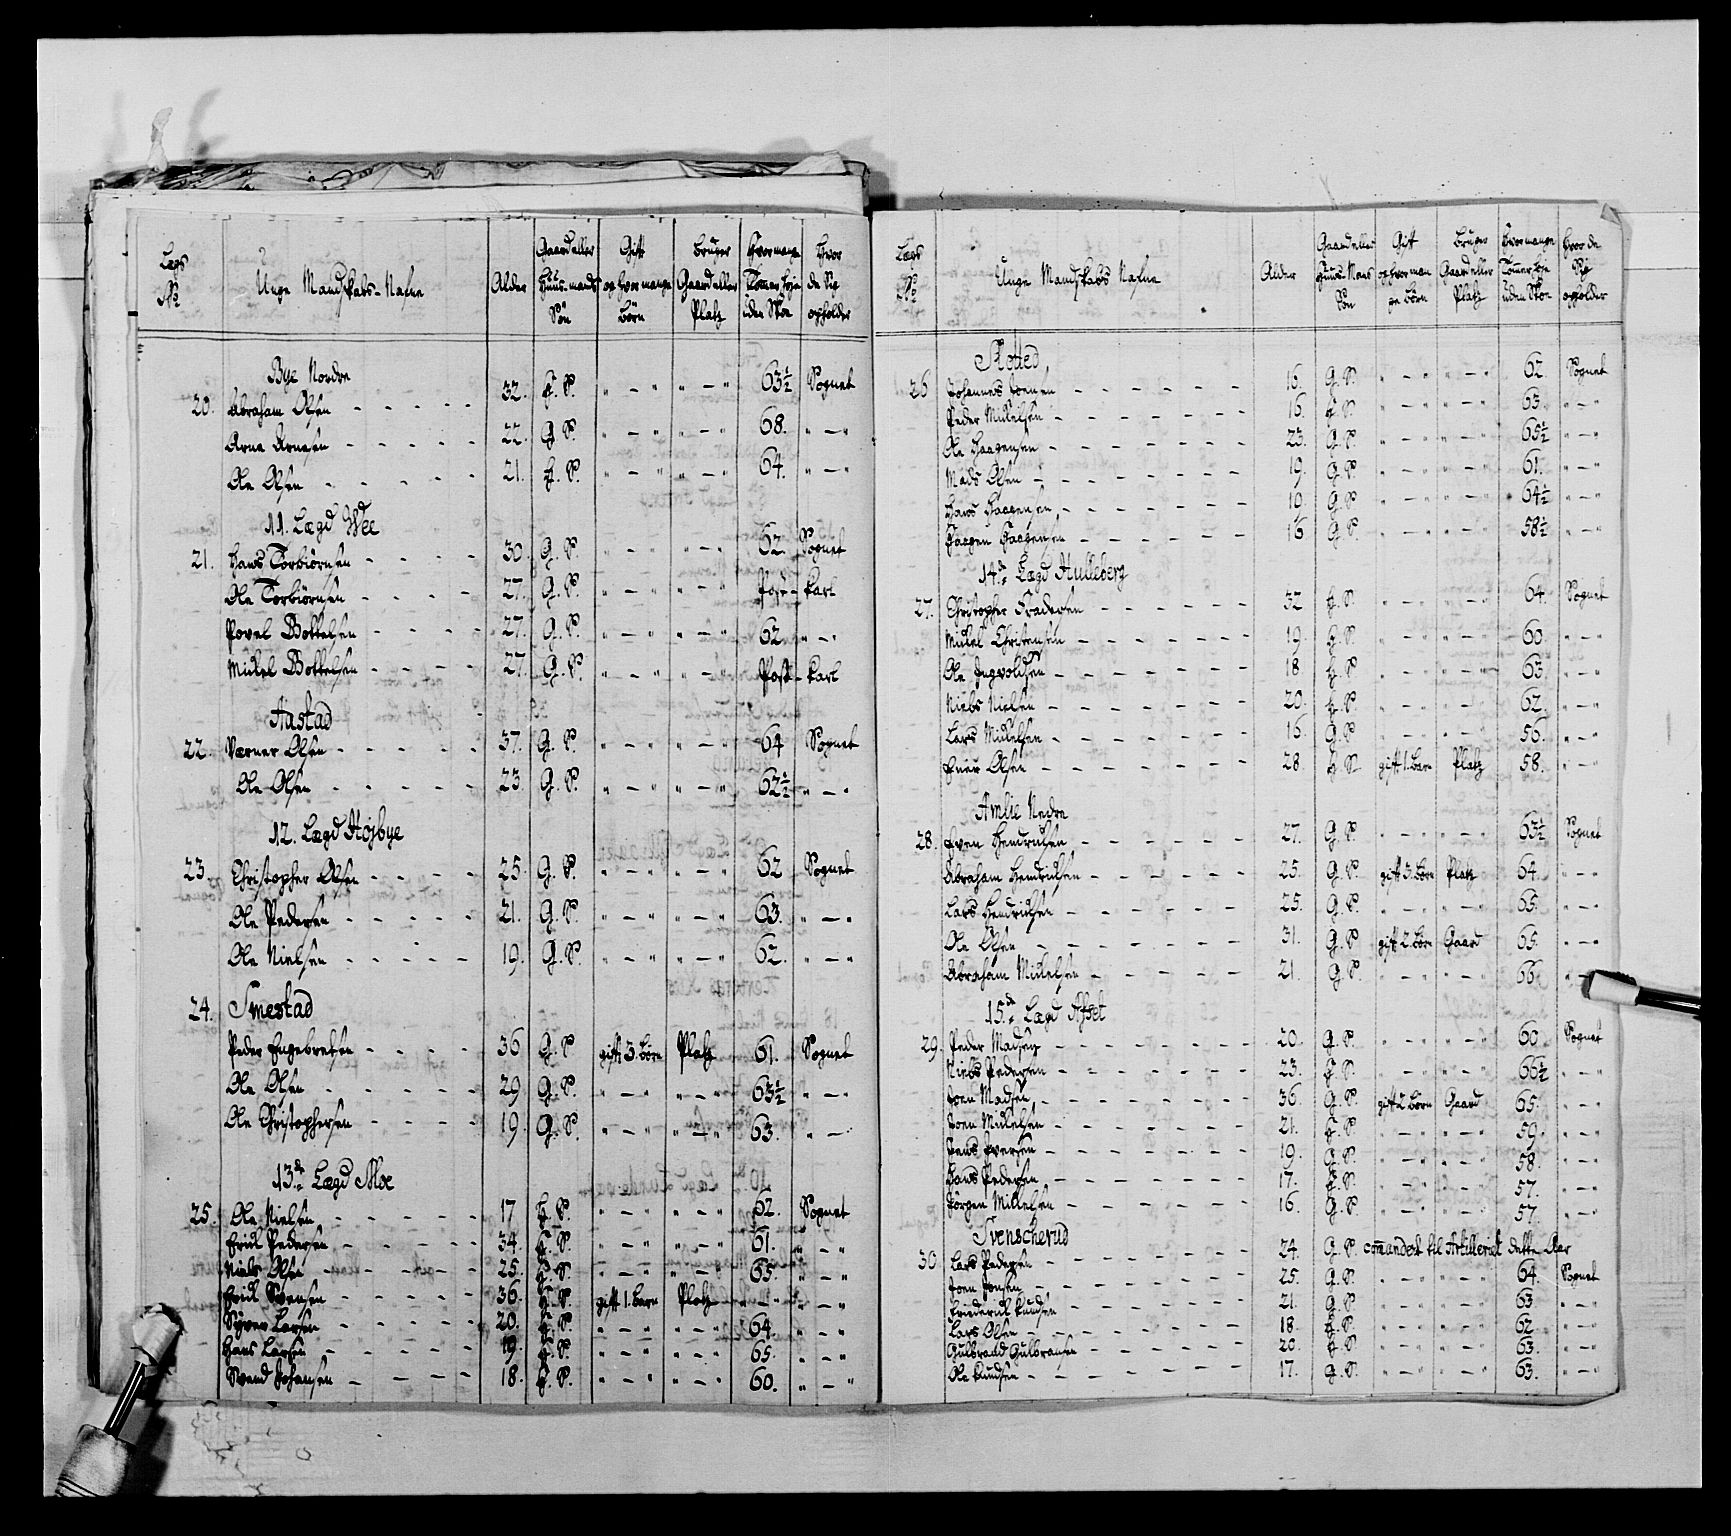 Lægs No | Unge Mandskabs-Nafne | Alder | Gaard eller Huus-mands Søn | Gift og hvor mange Børn | Bruger Gaard eller Platz | Hvor mange Tomer høje uden Skoe | Hvor de Sig opholder
Bye Nordre
20. Abraham Olsen - - - - 32. H. S. " - " " - " 63½ Sognet
Arne Arnesen - - - - 22. G. S. " - " " - " 68. " - "
Ole Olsen - - - - 21. H. S. " - " " - " 64. " - "
11. Lægd Wee
21. Hans Torbiörnsen - - - - 30. G. S. " - " " - " 62. Sognet
Ole Torbiörnsen - - - - 27. G. S. " - " " - " Post-Karl
Povel Bottelsen - - - - 27. G. S. " - " " - " 62 " - "
Mikel Bottelsen - - - - 27. G. S. " - " " - " Post-Karl
Aastad
22. Værner Olsen - - - - 37. G. S. " - " " - " 64 Sognet
Ole Olsen - - - - 23. G. S. " - " " - " 62½ " - "
12. Lægd Højbye
23. Christopher Olsen - - - - 25 G. S. " - " " - " 62 Sognet
Ole Pedersen - - - - 21. G. S. " - " " - " 63. " - "
Ole Nielsen - - - - 19. G. S. " - " " - " 62. " - "
24. Smestad
Peder Engebretsen - - - - 36 G. S. gift 3. Börn Platz 61. Sognet
Ole Olsen - - - - 29 G. S. " - " " - " 63½ " - "
Ole Christophersen - - - - 19. G. S. " - " " - " 63. " - "
13de Lægd Moe
25. Ole Nielsen - - - - 17 H. S. " - " " - " 62. Sognet
Erik Pedersen - - - - 34. H. S. " - " " - " 61. " - "
Niels Olsen - - - - 25. H. S. " - " " - " 65. " - "
Erik Svensen - - - - 36. H. S. gift 1. Barn Platz " - " " - "
Syver Larsen - - - - 20. H. S. " - " " - " 64. " - "
Hans Larsen - - - - 19. H. S. " - " " - " 65. " - "
Svend Johansen - - - - 18. H. S. " - " " - " 60. " - "
Lægs No | Unge Mandskabs Nafne | Alder | Gaard eller Huus-Mans Søn | Gift og hvor mange Børn | Bruger Gaard eller Platz | Hvor mange Tomer høje uden Skoe | Hvor de Sig opholder
26 Johannes - - - - 16. G. S. " - " " - " 62 Sognet
Peder Mikelsen - - - - 16. H. S. " - " " - " 63. " - "
Ole Haagensen - - - - 23. G. S. " - " " - " 65½ " - "
Mads Olsen - - - - 19. G. S. " - " " - " 61. " - "
Hans Haagensen - - - - 19. G. S. " - " " - " 64½ " - "
Haagen Haagensen - - - - 16 G. S. " - " " - " 58½ " - "
14de Lægd Hulleberg
27. Christopher - - - - 32 H. S. " - " " - " 64. Sognet
Mikel Christensen - - - - 19. H. S. " - " " - " 60. " - "
Ole Ingvoldsen - - - - 18 H. S. " - " " - " 63 " - "
Niels Nielsen - - - - 20. H. S. " - " " - " 62. " - "
Lars Mikelsen - - - - 16. G. S. " - " " - " 56. " - "
Einer Olsen - - - - 28. H. S. gift 1. Barn Platz 58. " - "
Amlie Nedre
28. Even Hendriksen - - - - 27. G. S. " - " " - " 63½ Sognet
Abraham Hendriksen - - - - 25. G. S. gift 3. Börn Platz 64. " - "
Lars Hendriksen - - - - 25. G. S. " - " " - " 65. " - "
Ole Olsen - - - - 31. G. S. gift 2. Börn Gaard 65. " - "
Abraham Mikelsen - - - - 21. G. S. " - " " - " 66. " - "
15de Lægd Afset
29. Peder Madsen - - - - 20. G. S. " - " " - " 60 Sognet
Niels Pedersen - - - - 23. H. S. " - " " - " 66½ " - "
Joen Madsen - - - - 36. G. S. gift 2 Börn Gaard 65. " - "
Joen Mikelsen - - - - 21. H. S. " - " " - " 59. " - "
Jens Iversen - - - - 19. G. S. " - " " - " 58. " - "
Hans Pedersen - - - - 17. H. S. " - " " - " 57. " - "
Jörgen Mikkelsen - - - - 16. G. S. " - " " - " 57. " - "
Svenscherud
30 Lars Pedersen - - - - 24. G. S. comandert til Artilleriet dette Aar
Joen Jonsen - - - - 25. G. S. " - " " - " 64. Sognet
Friederik Knudsen - - - - 21. G. S. " - " " - " 63 " - "
Lars Olsen - - - - 18. H. S. " - " " - " 62. " - "
Gulbrand Gulbransen - - - - 20. H. S. " - " " - " 63. " - "
Ole Knudsen - - - - 17. G. S. " - " " - " 63. " - "